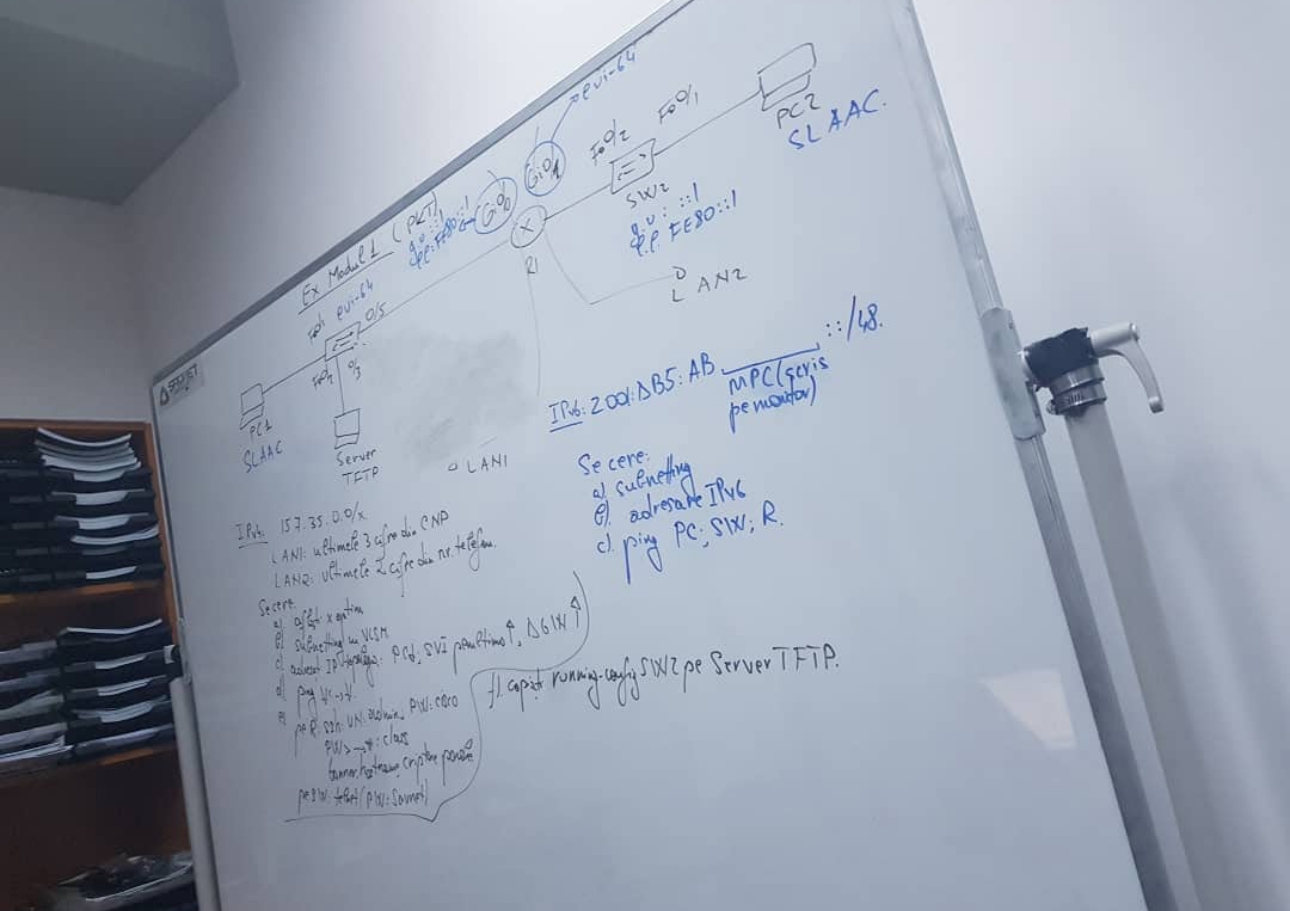 Ex Modul 1 (PKT)
eui-64
Gi0/0
Gi0/1
eui-64
g.u: ::1
l.l: FE80::1
Fa0/2
Fa0/1
PC2
SLAAC.
SW2
g.u: ::1
l.l. FE80::1
R1
LAN2
Fa0/1
0/5
Fa0/2
0/3
PC1
SLAAC
Server
TFTP
LAN1
IPv4: 157.35.0.0/x
LAN1: ultimele 3 cifre din CNP
LAN2: ultimele 2 cifre din nr. telefon.
Se cere:
a) aflati x optim
b) subnetting cu VLSM
c) adresare IP topologie: PC1, SVI penultima ↑, DGW ↑
d) ping
e) pe R: ssh: UN: admin, PW: cisco
PW > → #: class
banner, hostname, criptare parole
pe SW: telnet (PW:
f). copiati running-config SW2 pe Server TFTP.
IPv6: 2001:DB5:AB ::/48.
MPC (scris
pe monitor)
Se cere:
a) subnetting
b). adresare IPv6
c). ping PC; SW; R.